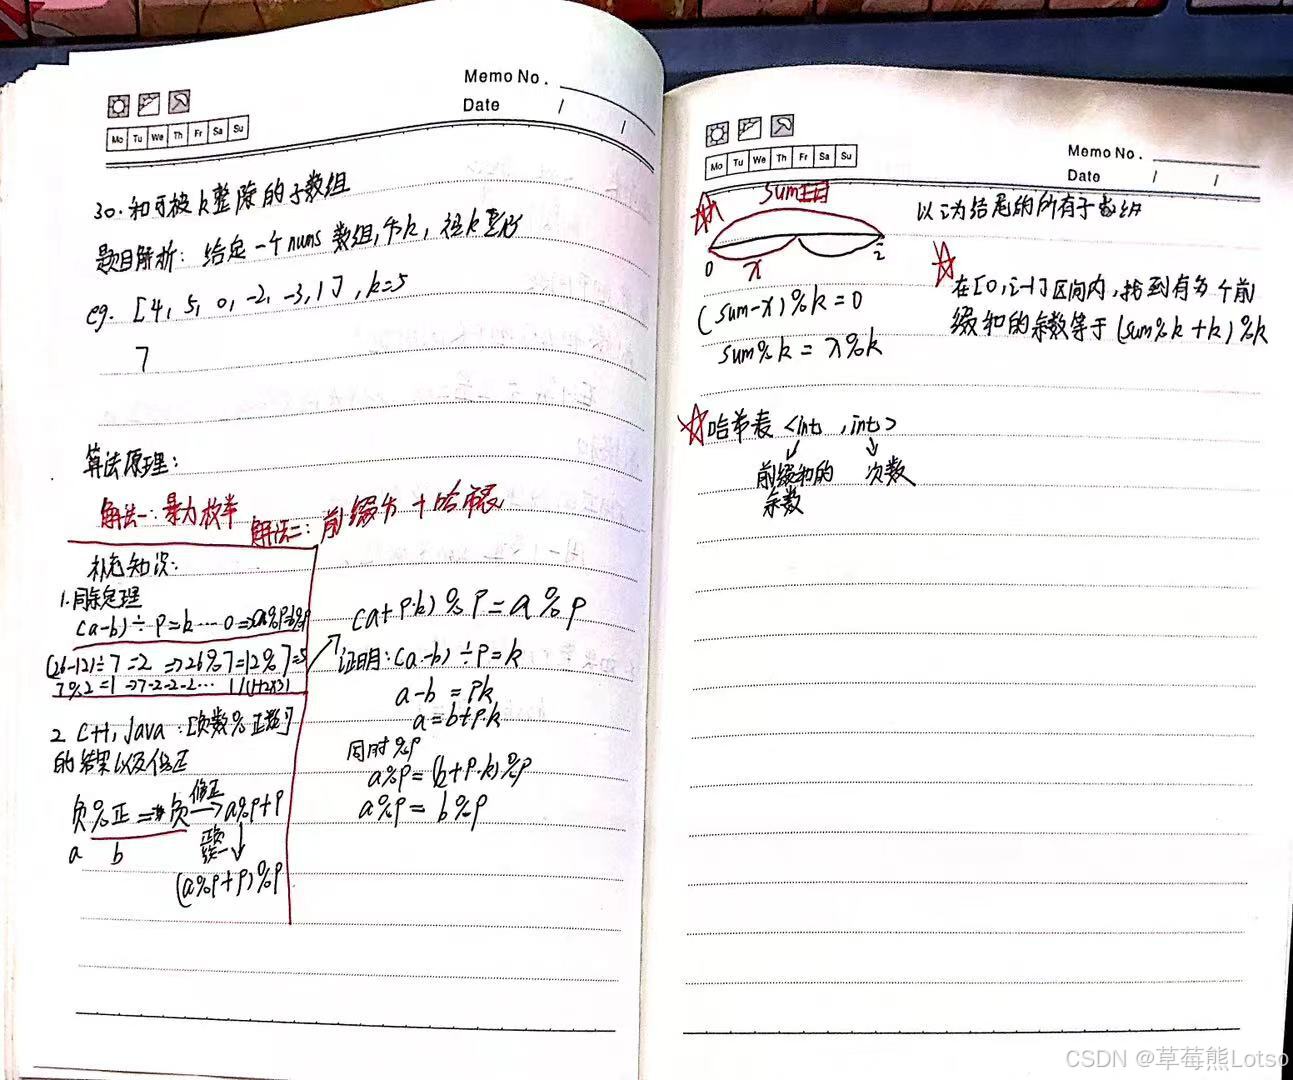 Memo No.
Date / /
Mo Tu We Th Fr Sa Su
30. 和可被k整除的子数组
题目解析: 给定一个nums 数组,和k, 被k整除
eg. [4, 5, 0, -2, -3, 1], k=5
7
算法原理:
解法一: 暴力枚举
解法二: 前缀和 + 哈希表
补充知识:
1. 同余定理
(a-b) ÷ p = k ... 0 => a%p=b%p
(26-12)÷7=2 => 26%7=12%7=5
7%2=1 → 7-2-2-2... 1
2 C++, Java: [负数%正数]
的结果以及修正
负%正 => 负 修正 → a%p+p
a b
正负统一
(a%p+p)%p
(a+p·k)%p=a%p
证明: (a-b) ÷p=k
a-b = pk
a=b+p·k
同时%p
a%p= (b+p·k)%p
a%p= b%p
Memo No.
Date / /
Mo Tu We Th Fr Sa Su
sum
以i为结尾的所有子数组
0 x i
(sum-x)%k=0
sum%k = x%k
在[0,i-1]区间内,找到有多少个前
缀和的余数等于 (sum%k+k)%k
哈希表 <int, int>
前缀和的
余数
次数
CSDN @草莓熊Lotso